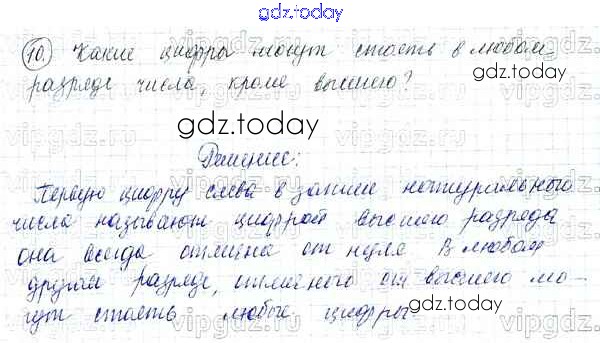 gdz.today
10. Какие цифры могут стоять в любом
разряде числа, кроме высшего?
gdz.today
gdz.today
Решение:
Первую цифру слева в записи натурального
числа называют цифрой высшего разряда
она всегда отлична от нуля. В любом
другом разряде, отличного от высшего мо-
гут стоять любые цифры.
gdz.today
vipgdz.ru